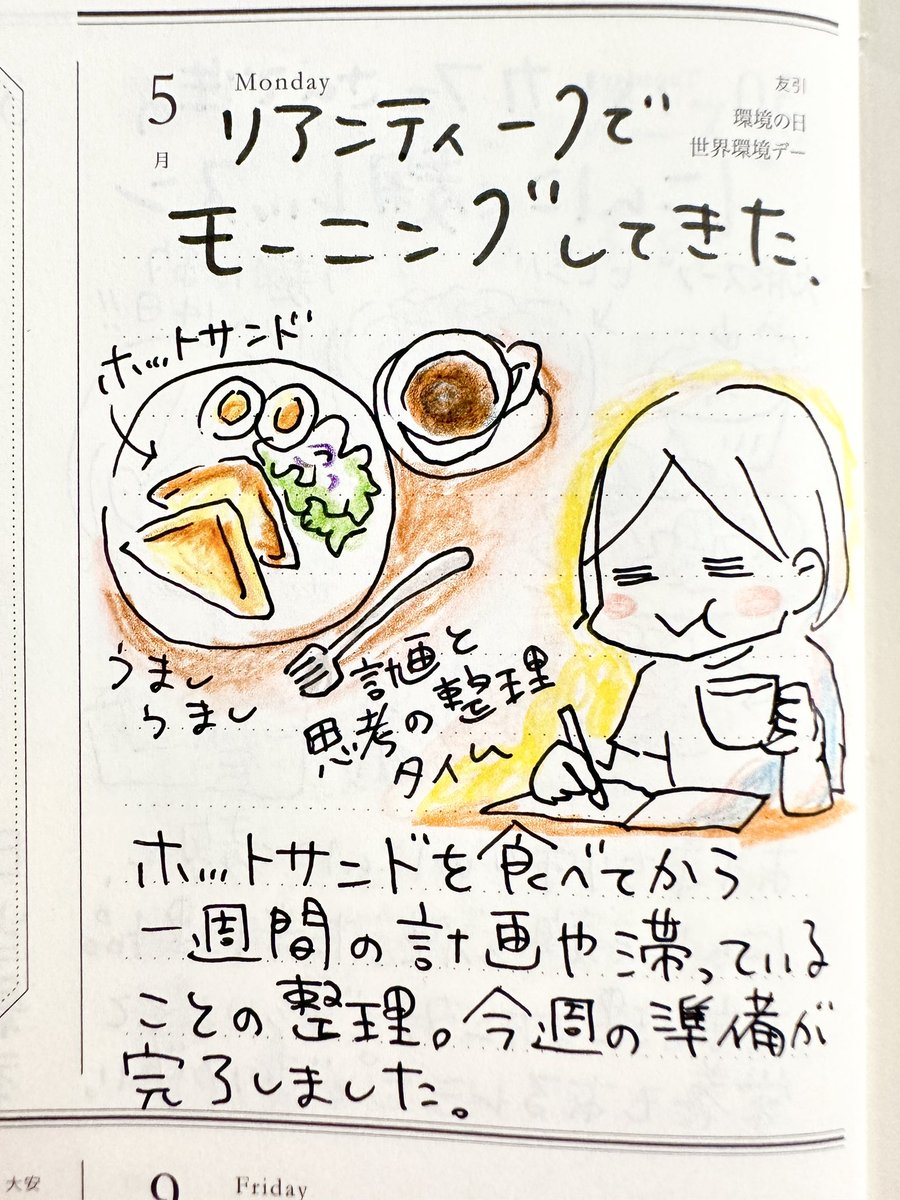 5
月
Monday
友引
環境の日
世界環境デー
リアンティークで
モーニングしてきた.
ホットサンド
うまし
うまし
計画と
思考の整理
タイム
ホットサンドを食べてから
一週間の計画や滞っている
ことの整理。今週の準備が
完了しました。
大安
9
Friday